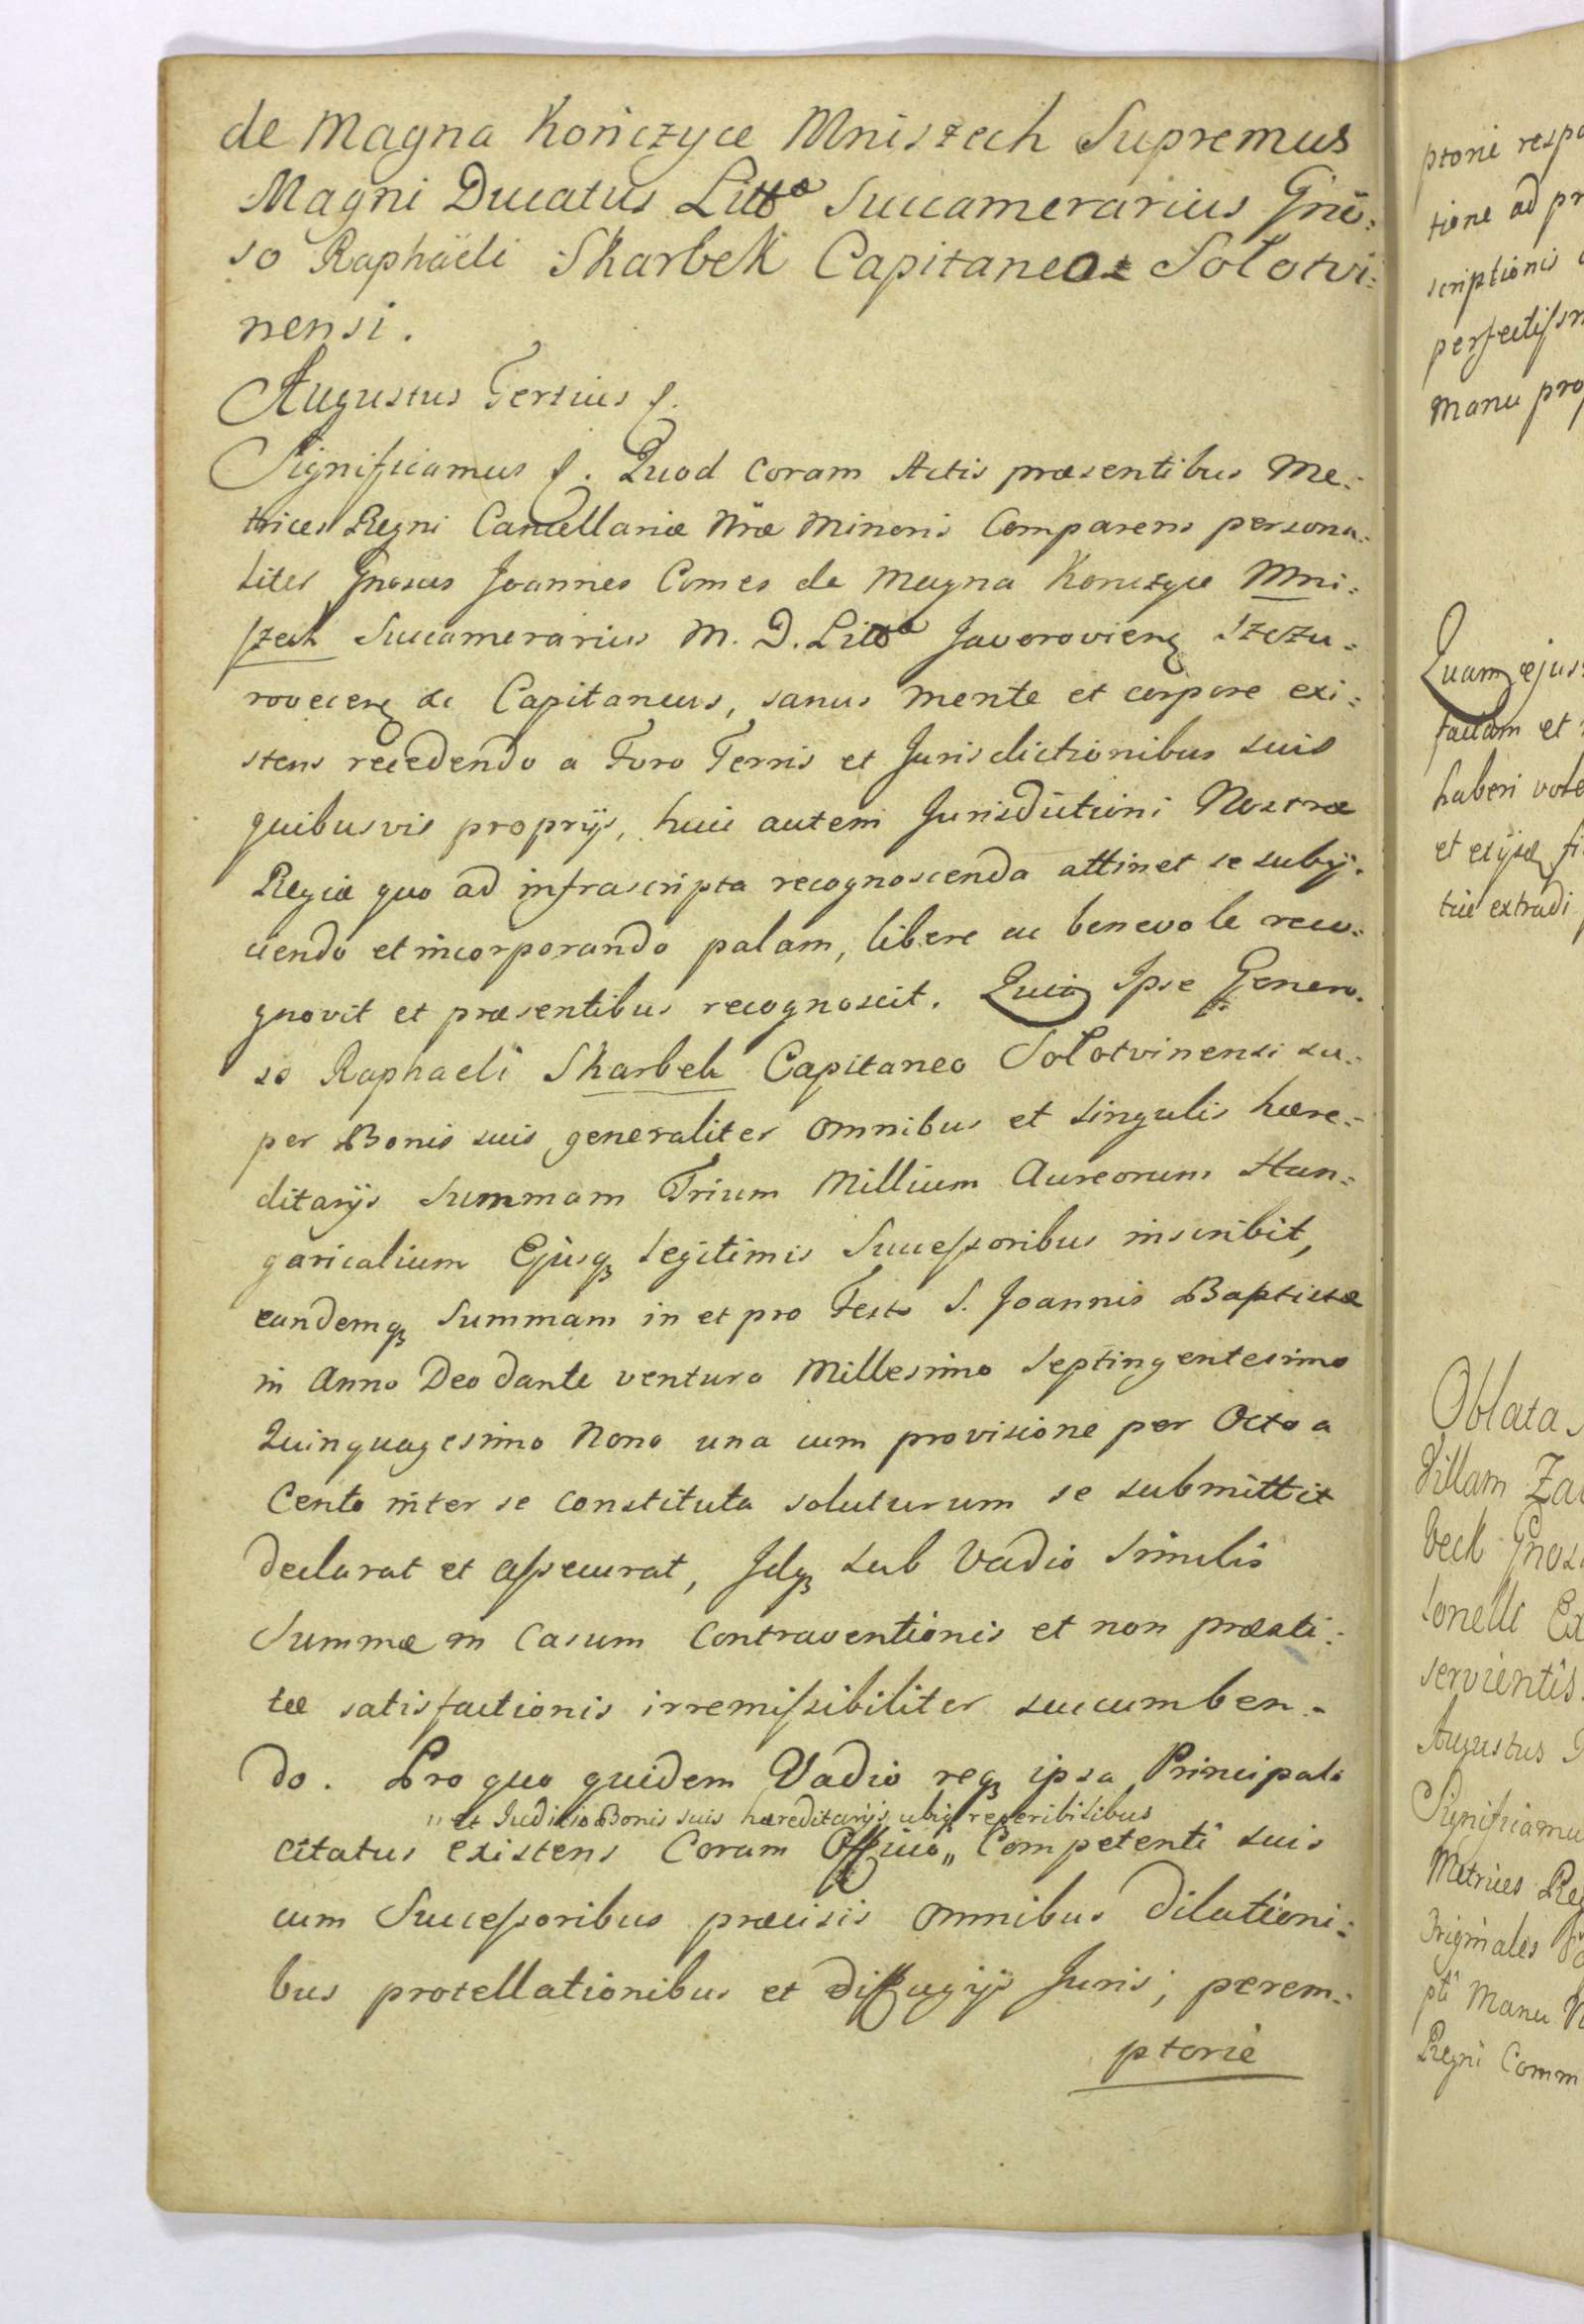 de Magna Kończyce Mniszech Supremus
Magni Ducatus Littᵒ Succamerarius Gnō=
so Raphäeli Skarbek Capitaneo Sołotvi=
nensi.
Augustus Tertius
Significamus Quod coram Actis præsentibus Me=
trices Regni Cancellariæ Nræ Minoris Comparens persona=
liter Gnosus Joannes Comes de Magna Konczyce Mni=
szech Succamerarius M. D. Littᵃ Javorovien Szczu=
rovecen Capitaneus, sanus mente et corpore exi=
stens recedendo a Foro Terris et Jurisdictionibus suis
quibusvis proprijs, huic autem Jurisdictioni Nostræ
Regiæ quo ad infrascripta recognoscenda attinet se subij=
ciendo et incorporando palam, libere ac benevole reco=
gnovit et præsentibus recognoscit. Quia Ipse Genero=
so Raphaeli Skarbek Capitaneo Sołotvinensi su=
per Bonis suis generaliter omnibus et singulis hære=
ditarijs Summam Trium Millium Aureorum Hun=
garicalium Ejusqꝫ legitimis Successoribus inscribit,
eandemqꝫ Summam in et pro Festo S. Joannis Baptistæ
in Anno Deo dante venturo Millesimo Septingentesimo
Quinquagesimo Nono una cum provisione per Octo a
Cento inter se constituta soluturum se submittit
declarat et assecurat, Idqꝫ sub Vadio similis
Summæ in Casum Contraventionis et non præsti=
tæ satisfactionis irremissibiliter succumben=
do. Pro quo quidem Vadio reqꝫ ipsa Principali
„et Judicio Bonis suis hæreditarijs ubiqꝫ reperibilibus
citatus existens Coram Officio„ Competenti suis
cum Successoribus præcisis omnibus dilationi=
bus protellationibus et diffugijs Juris, perem=
ptorie
ptorie
tione ad
scriptionis
Manu
Quam
factam et
haberi
et
extradi
Oblata
Villam
servientis
Augustus
Metrices
Originales
Manu
Regni Comm